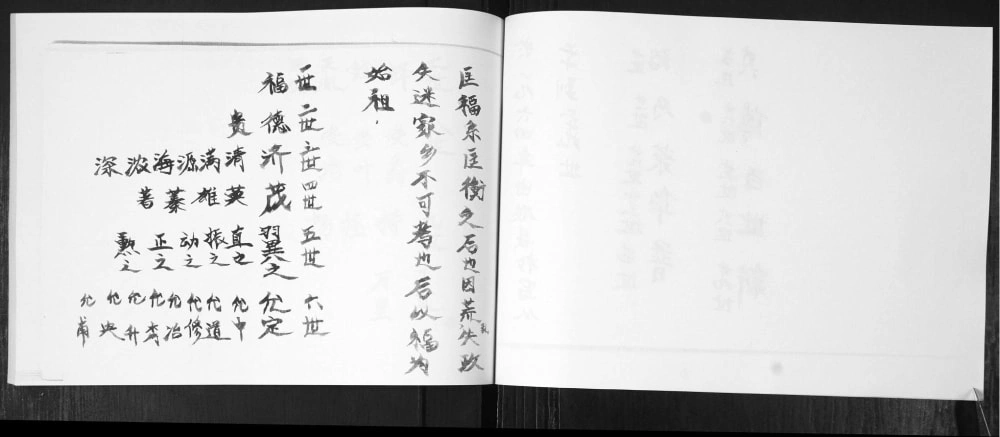 匡福系匡衡之后也因荒乱失政
失迷家乡不可考也后以福为
始祖.
一世 二世 三世 四世 五世 六世
福 德 济 茂 翼之 允定
贵 清 英 直之 允中
满 雄 振之 允道
源 蓁 动之 允修
海 著 正之 允冶
波 勲之
深 允升
允央
允甫